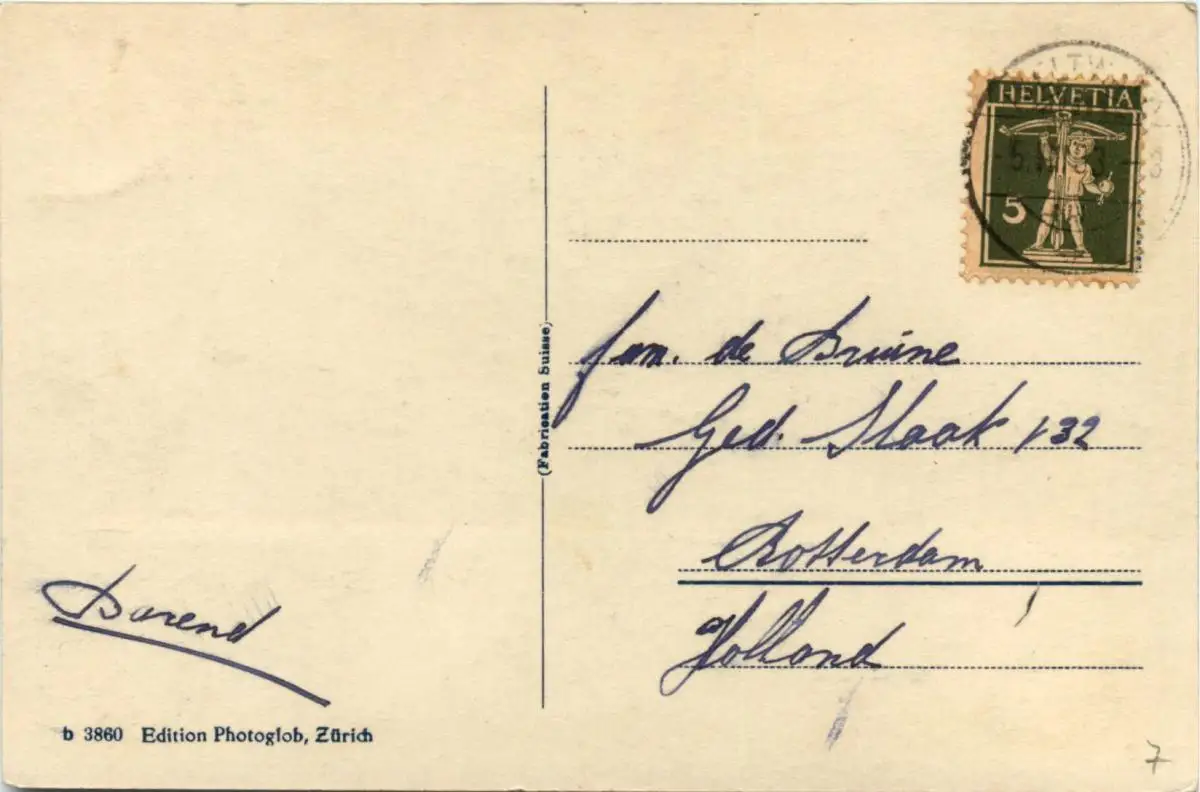 HELVETIA
5
(Fabrication Suisse)
fam. de Bruine
Ged. Slaak 132
Rotterdam
Holland
Barend
b 3860 Edition Photoglob, Zürich
7